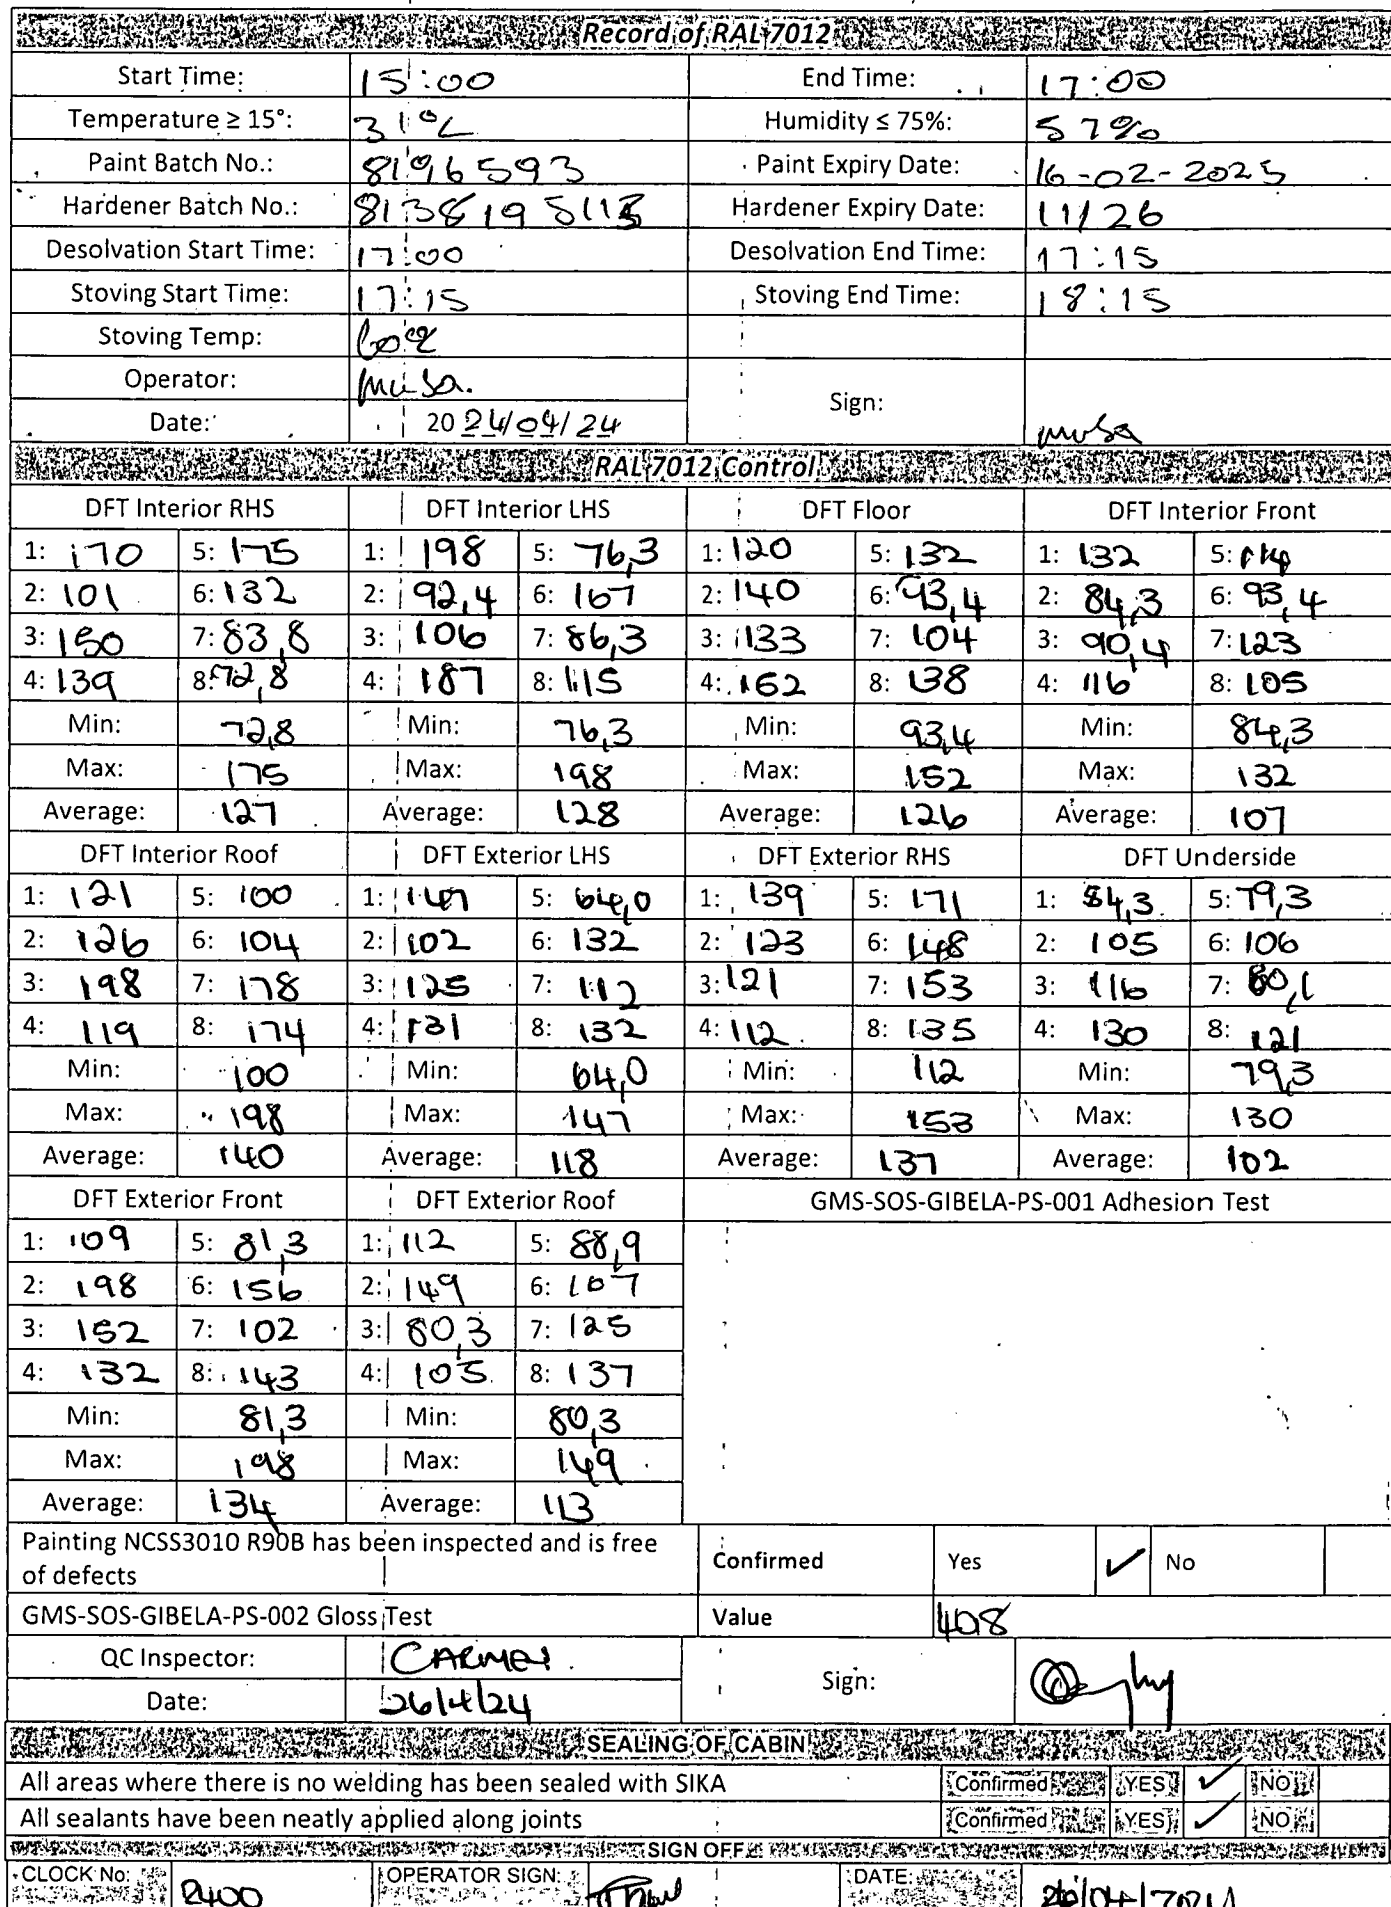 Record of RAL 7012
Start Time: 15:00 End Time: 17:00
Temperature ≥ 15°: 31°C Humidity ≤ 75%: 57%
Paint Batch No.: 8196593 Paint Expiry Date: 16-02-2025
Hardener Batch No.: Hardener Expiry Date: 11/26
Desolvation Start Time: 17:00 Desolvation End Time: 17:15
Stoving Start Time: 17:15 Stoving End Time: 18:15
Stoving Temp:
Operator: Musa. Sign: musa
Date: 2024/04/24
RAL 7012 Control
DFT Interior RHS DFT Interior LHS DFT Floor DFT Interior Front
1: 170 5: 175 1: 198 5: 76,3 1: 120 5: 132 1: 132 5: 114
2: 101 6: 132 2: 92,4 6: 167 2: 140 6: 93,4 2: 84,3 6: 93,4
3: 150 7: 83,8 3: 106 7: 86,3 3: 133 7: 104 3: 90,4 7: 123
4: 139 8: 72,8 4: 187 8: 115 4: 152 8: 138 4: 116 8: 105
Min: 72,8 Min: 76,3 Min: 93,4 Min: 84,3
Max: 175 Max: 198 Max: 152 Max: 132
Average: 127 Average: 128 Average: 126 Average: 107
DFT Interior Roof DFT Exterior LHS DFT Exterior RHS DFT Underside
1: 121 5: 100 1: 147 5: 64,0 1: 139 5: 171 1: 84,3 5: 79,3
2: 126 6: 104 2: 102 6: 132 2: 123 6: 148 2: 105 6: 106
3: 198 7: 178 3: 125 7: 112 3: 121 7: 153 3: 116 7: 80,1
4: 119 8: 174 4: 131 8: 132 4: 112 8: 135 4: 130 8: 121
Min: 100 Min: 64,0 Min: 112 Min: 79,3
Max: 198 Max: 147 Max: 153 Max: 130
Average: 140 Average: 118 Average: 137 Average: 102
DFT Exterior Front DFT Exterior Roof GMS-SOS-GIBELA-PS-001 Adhesion Test
1: 109 5: 81,3 1: 112 5: 88,9
2: 198 6: 156 2: 149 6: 107
3: 152 7: 102 3: 80,3 7: 125
4: 132 8: 143 4: 105 8: 137
Min: 81,3 Min: 80,3
Max: 198 Max: 149
Average: 134 Average: 113
Painting NCSS3010 R90B has been inspected and is free
of defects Confirmed Yes ✓ No
GMS-SOS-GIBELA-PS-002 Gloss Test Value 40,8
QC Inspector: Sign:
Date: 26/4/24
SEALING OF CABIN
All areas where there is no welding has been sealed with SIKA Confirmed YES ✓ NO
All sealants have been neatly applied along joints Confirmed YES ✓ NO
SIGN OFF
CLOCK No: 2400 OPERATOR SIGN: DATE: 26/04/2024